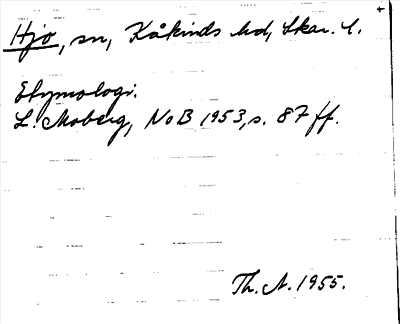 Hjo, sn, Kåkinds hd, Skar. l.
Etymologi.
L. Moberg, NoB 1953, s. 87 ff.
Th. A. 1955.